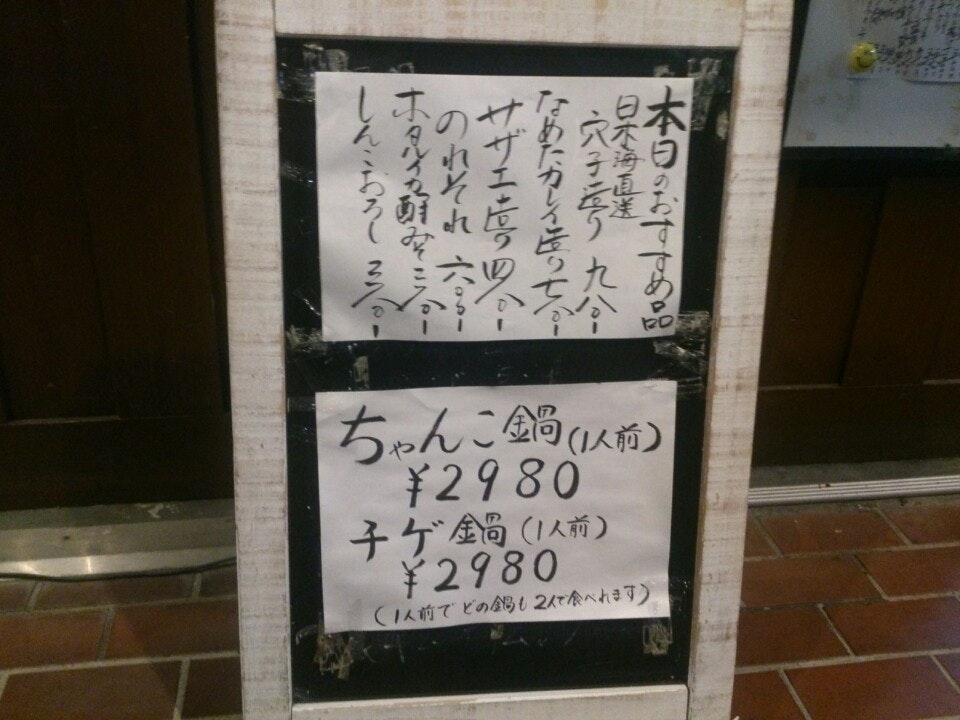 本日のおすすめ品
日本海直送
穴子造り 九八〇-
なめたカレイ造り 七八〇-
サザエ造り 四八〇-
のれそれ 六〇〇-
ホタルイカ酢みそ 三八〇-
しんこおろし 三八〇-
ちゃんこ鍋(1人前)
¥2980
チゲ鍋(1人前)
¥2980
(1人前でどの鍋も2人で食べれます)